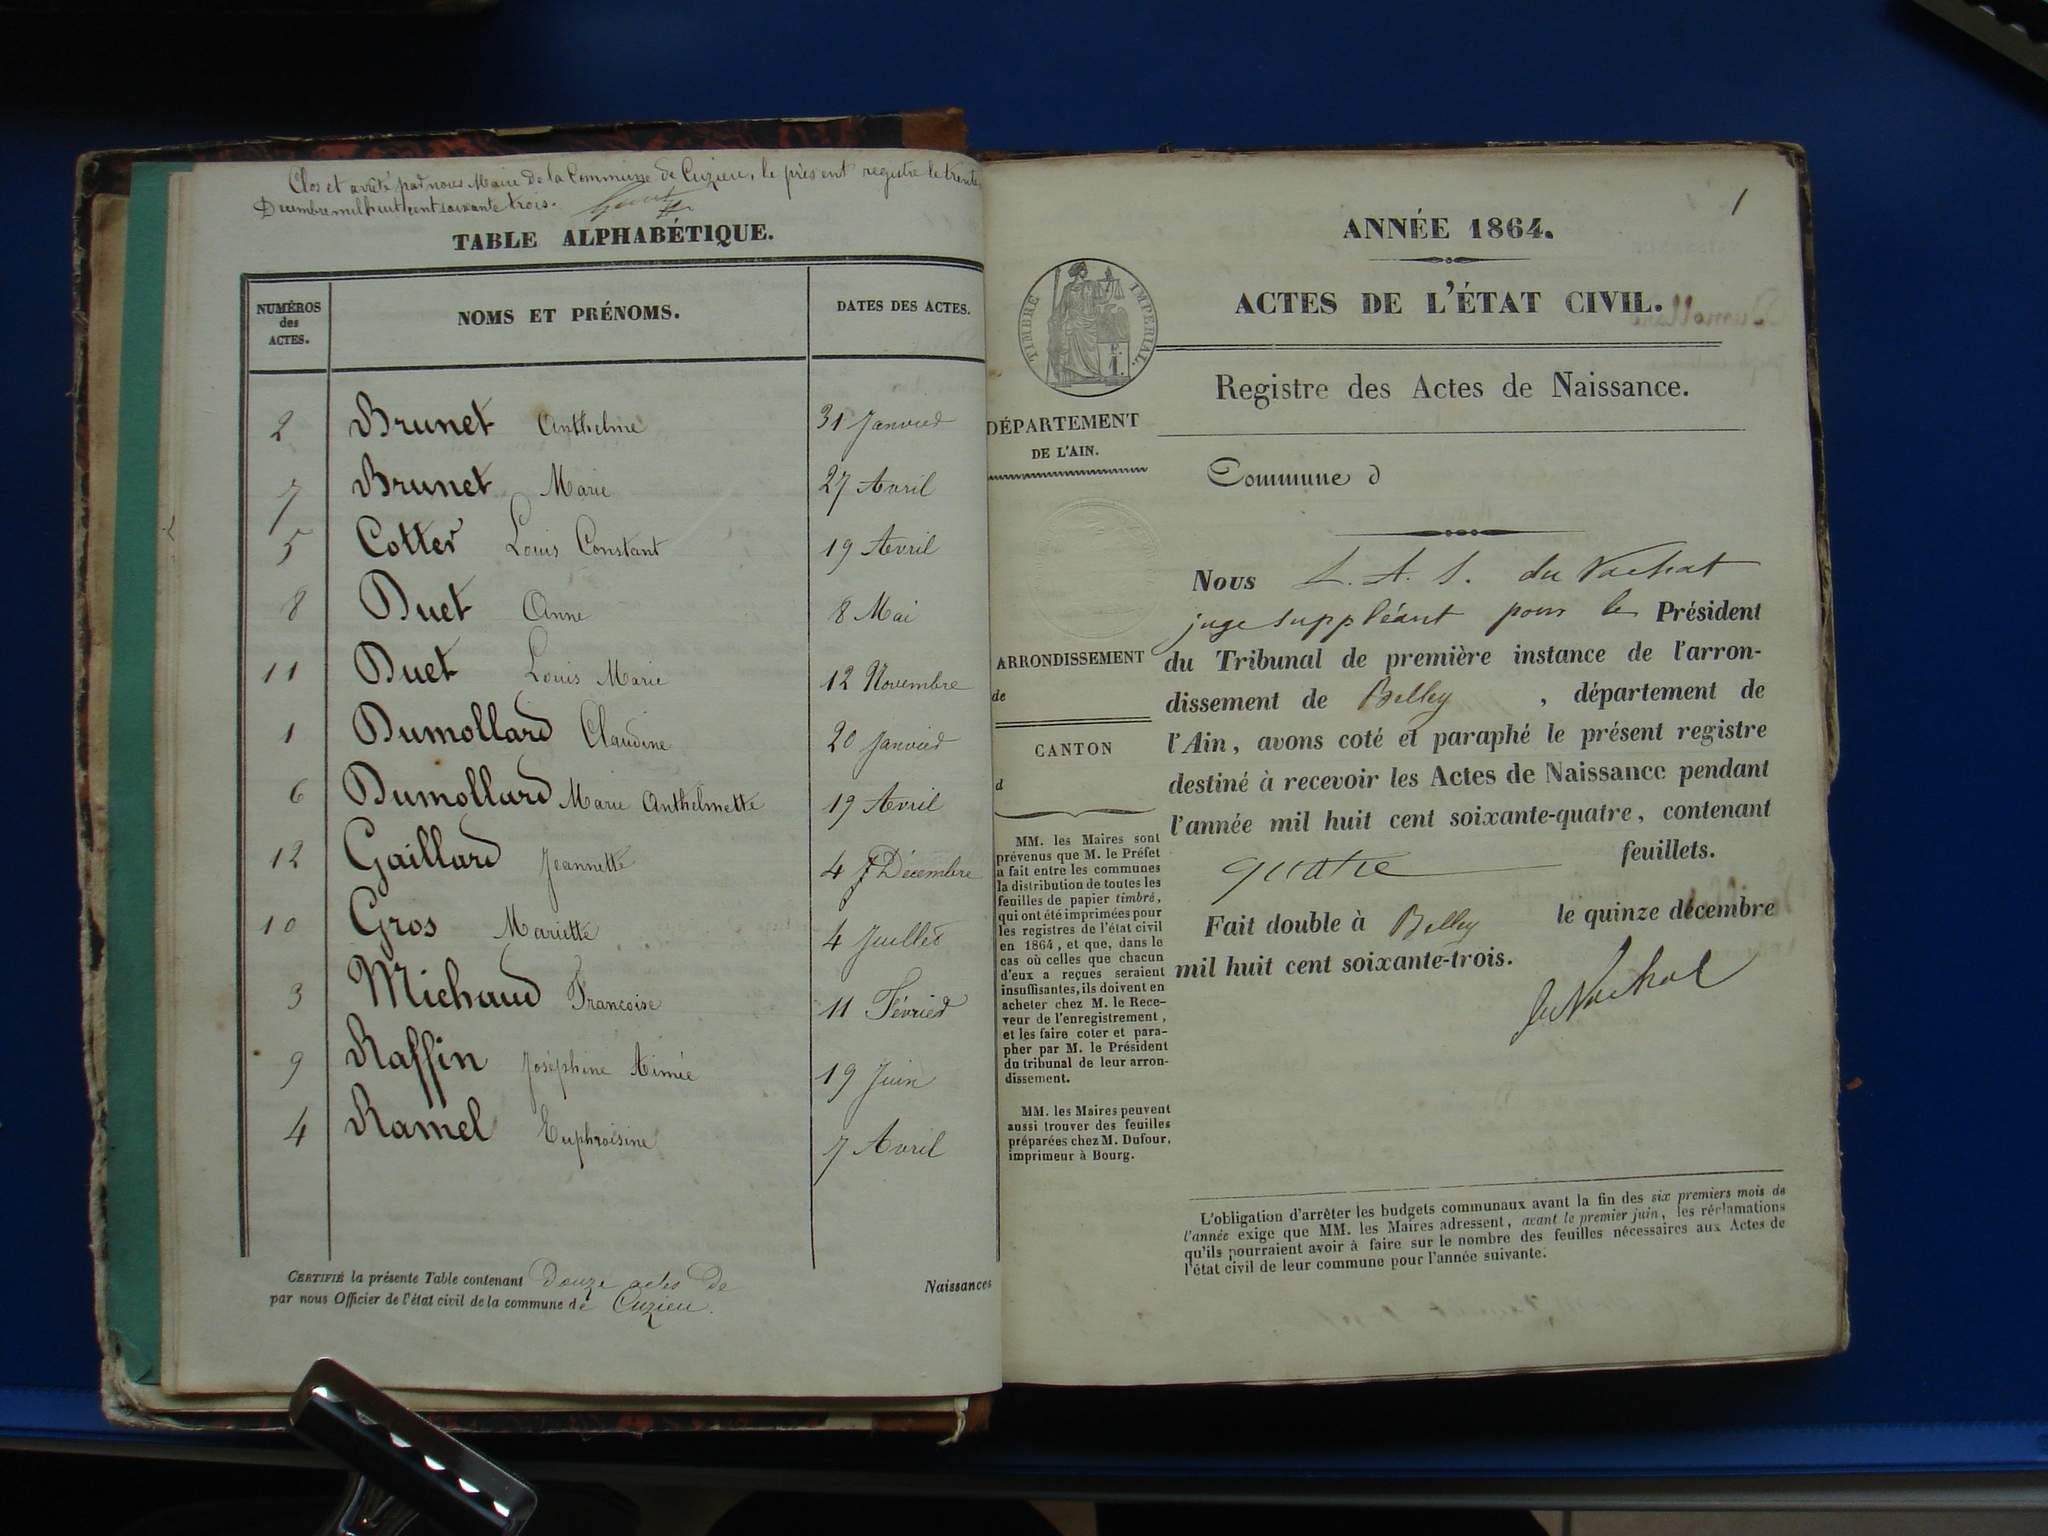 Clos et arrêté par nous Maire de la Commune de Cuzieu, le présent registre le trente
Decembre mil huit cent soixante trois.
TABLE ALPHABÉTIQUE.
NUMÉROS des ACTES. NOMS ET PRÉNOMS. DATES DES ACTES.
2 Brunet Anthelme 31 Janvier
7 Brunet Marie 27 Avril
5 Cotter Louis Constant 19 Avril
8 Duet Anne 8 Mai
11 Duet Louis Marie 12 Novembre
1 Dumollard Claudine 20 Janvier
6 Dumollard Marie Anthelmette 19 Avril
12 Gaillard Jeannette 4 Décembre
10 Gros Mariette 4 Juillet
3 Michaud Françoise 11 Février
9 Raffin Joséphine Aimée 19 Juin
4 Ramel Euphroisine 7 Avril
CERTIFIÉ la présente Table contenant Douze actes de Naissances
par nous Officier de l'état civil de la commune de Cuzieu.
1
ANNÉE 1864.
ACTES DE L'ÉTAT CIVIL.
TIMBRE IMPÉRIAL.
Registre des Actes de Naissance.
DÉPARTEMENT
DE L'AIN.
ARRONDISSEMENT
de
CANTON
d
MM. les Maires sont
prévenus que M. le Préfet
a fait entre les communes
la distribution de toutes les
feuilles de papier timbré,
qui ont été imprimées pour
les registres de l'état civil
en 1864, et que, dans le
cas où celles que chacun
d'eux a reçues seraient
insuffisantes, ils doivent en
acheter chez M. le Rece-
veur de l'enregistrement,
et les faire coter et para-
pher par M. le Président
du tribunal de leur arron-
dissement.
MM. les Maires peuvent
aussi trouver des feuilles
préparées chez M. Dufour,
imprimeur à Bourg.
Commune d
Nous L. A. S. du Vachat
juge suppléant pour le Président
du Tribunal de première instance de l'arron-
dissement de Belley , département de
l'Ain, avons coté et paraphé le présent registre
destiné à recevoir les Actes de Naissance pendant
l'année mil huit cent soixante-quatre, contenant
quatre feuillets.
Fait double à Belley le quinze décembre
mil huit cent soixante-trois.
du Vachat
L'obligation d'arrêter les budgets communaux avant la fin des six premiers mois de
l'année exige que MM. les Maires adressent, avant le premier juin, les réclamations
qu'ils pourraient avoir à faire sur le nombre des feuilles nécessaires aux Actes de
l'état civil de leur commune pour l'année suivante.